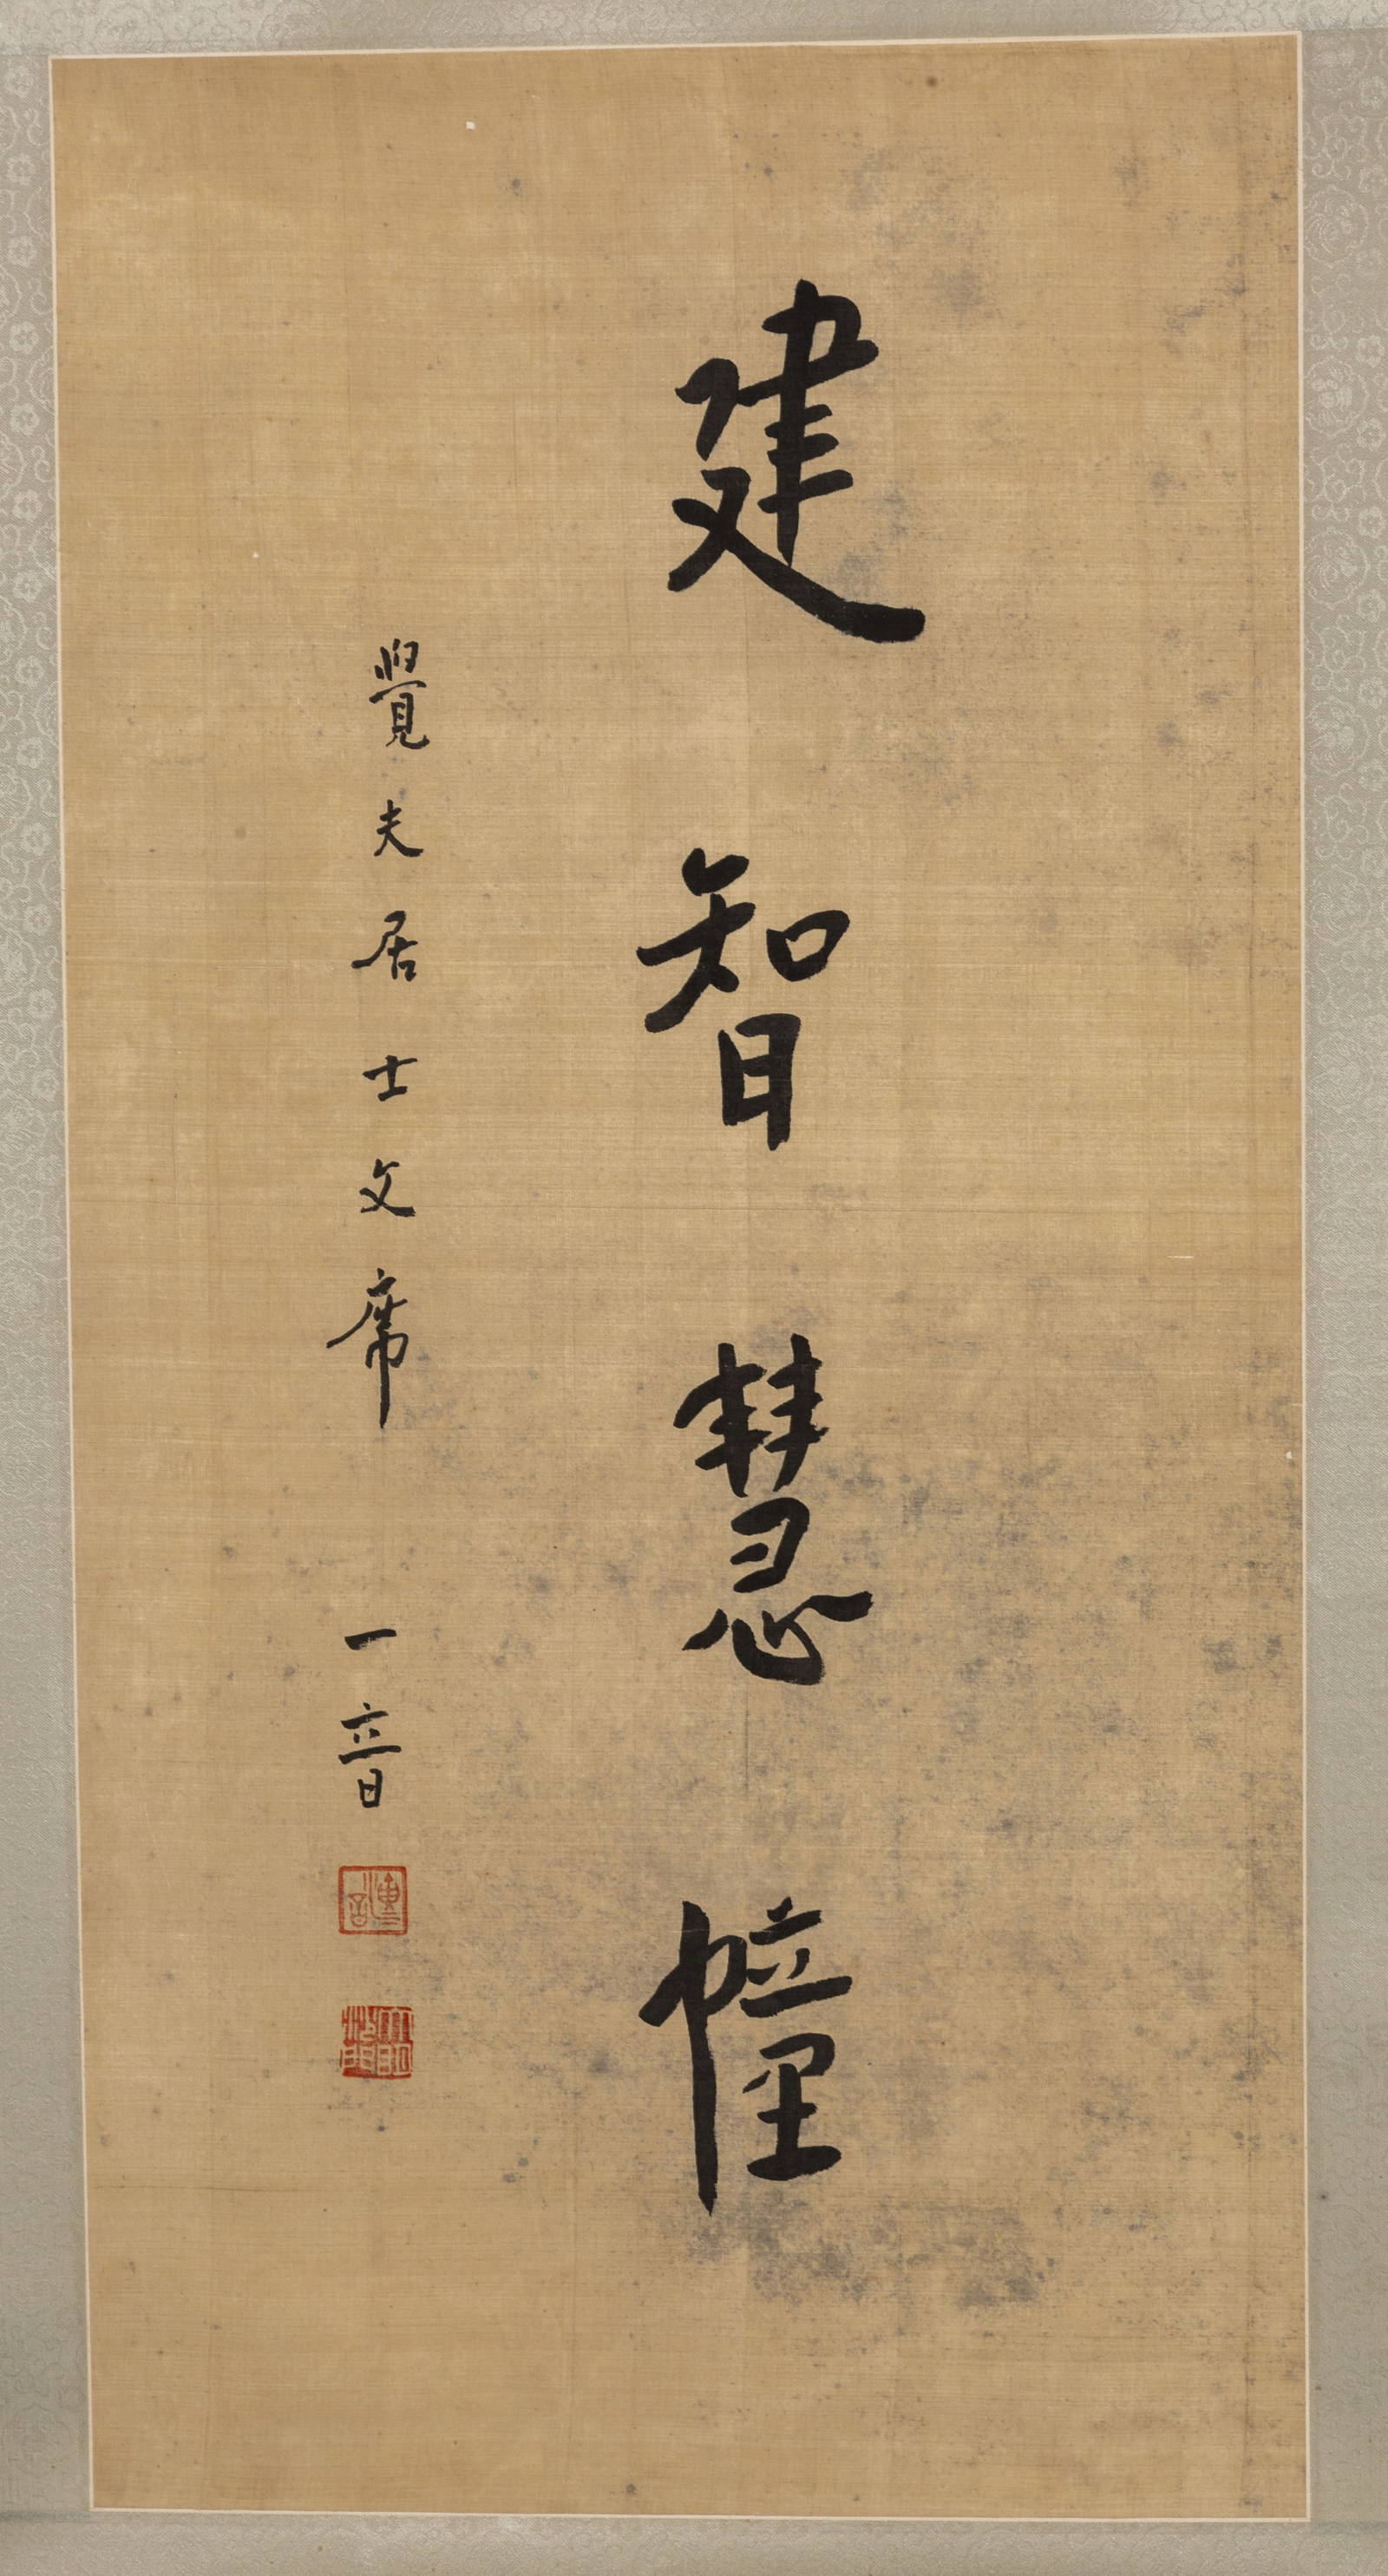 建智慧幢
覺夫居士文席
一音
演音